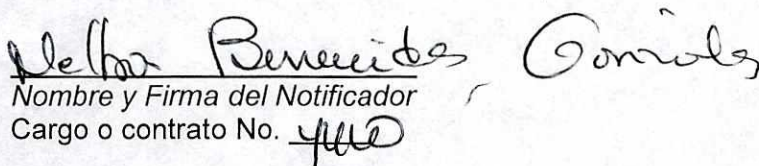 Benavides Gonzalez
Nombre y Firma del Notificador
Cargo o contrato No.